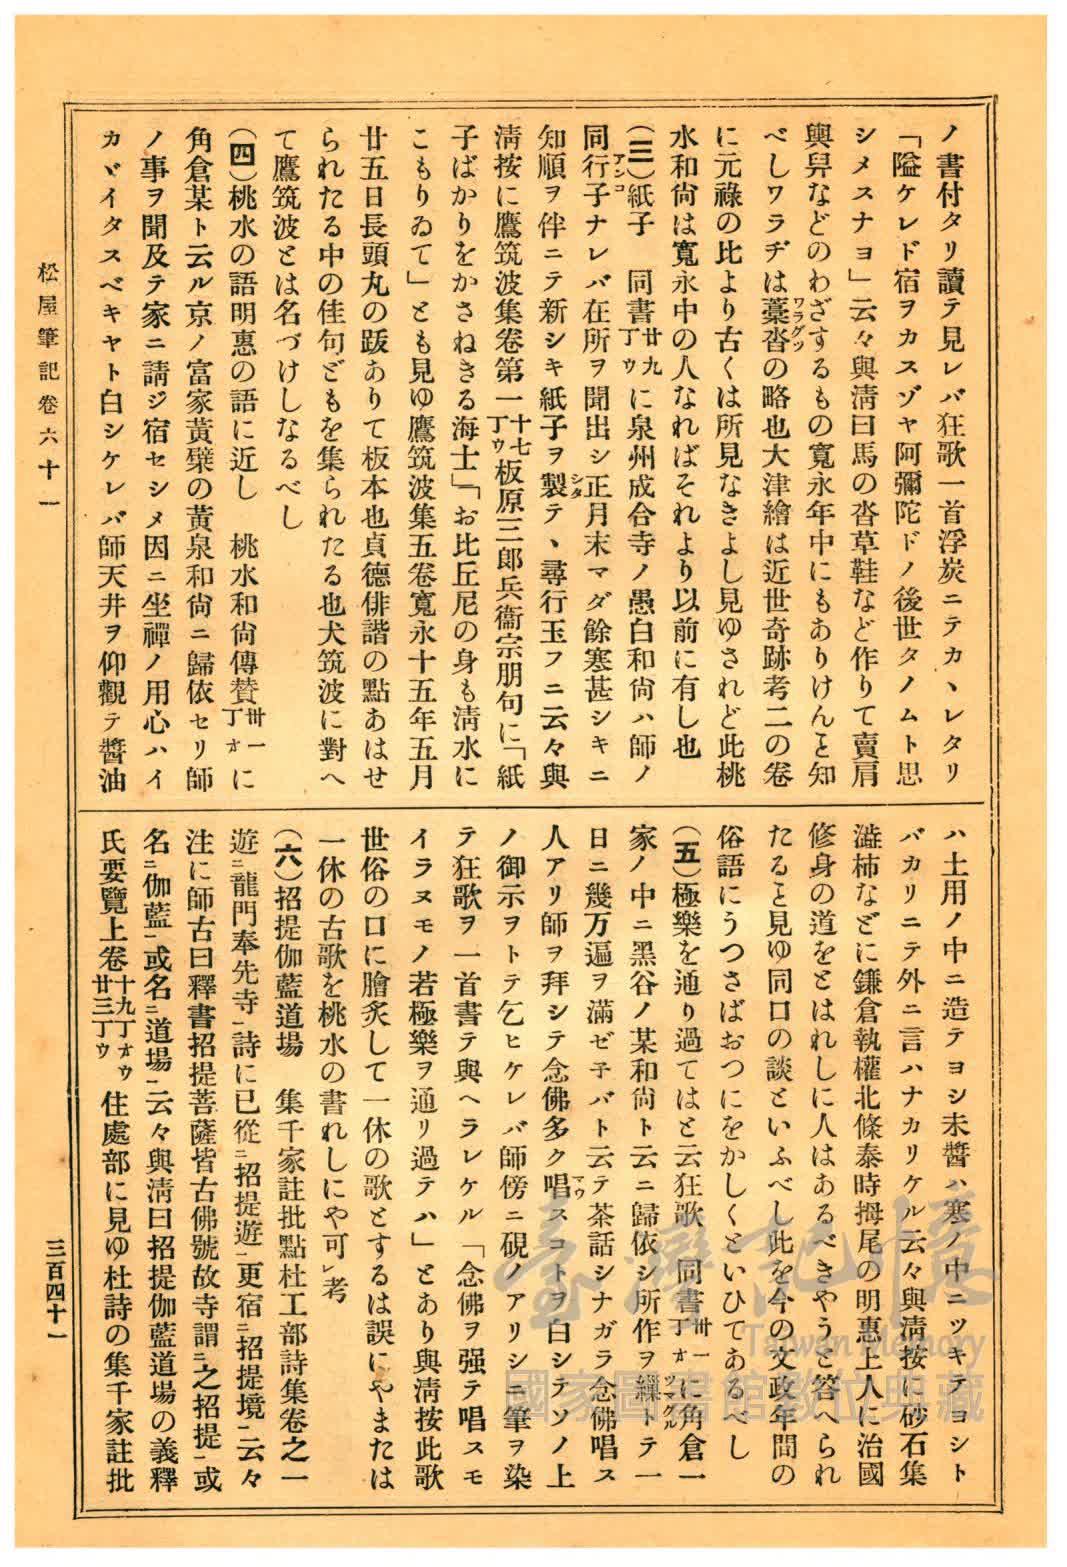 ノ書付タリ讀テ見レバ狂歌一首浮炭ニテカヽレタリ
「隘ケレド宿ヲカスゾヤ阿彌陀ドノ後世タノムト思
シメスナヨ」云々與淸曰馬の沓草鞋など作りて賣肩
輿舁などのわざするもの寬永年中にもありけんと知
べしワラヂは藁沓ワラグツの略也大津繪は近世奇跡考二の卷
に元祿の比より古くは所見なきよし見ゆされど此桃
水和尙は寬永中の人なればそれより以前に有し也
(三)紙子　同書廿九丁ウに泉州成合寺ノ愚白和尙ハ師ノ
同行子アンコナレバ在所ヲ聞出シ正月末マダ餘寒甚シキニ
知順ヲ伴ニテ新シキ紙子ヲ製シタテヽ尋行玉フニ云々與
淸按に鷹筑波集卷第一十七丁ウ板原三郞兵衞宗朋句に「紙
子ばかりをかさねきる海士」「お比丘尼の身も淸水に
こもりゐて」とも見ゆ鷹筑波集五卷寬永十五年五月
廿五日長頭丸の跋ありて板本也貞德俳諧の點あはせ
られたる中の佳句どもを集られたる也犬筑波に對へ
て鷹筑波とは名づけしなるべし
(四)桃水の語明惠の語に近し　桃水和尙傳贊卅一丁オに
角倉某ト云ル京ノ富家黃檗の黃泉和尙ニ歸依セリ師
ノ事ヲ聞及テ家ニ請ジ宿セシメ因ニ坐禪ノ用心ハイ
カヾイタスベキヤト白シケレバ師天井ヲ仰觀テ醬油
ハ土用ノ中ニ造テヨシ未醬ハ寒ノ中ニツキテヨシト
バカリニテ外ニ言ハナカリケル云々與淸按に砂石集
澁柿などに鎌倉執權北條泰時栂尾の明惠上人に治國
修身の道をとはれしに人はあるべきやうと答へられ
たると見ゆ同口の談といふべし此を今の文政年間の
俗語にうつさばおつにをかしくといひてあるべし
(五)極樂を通り過てはと云狂歌　同書卅一丁オに角倉一
家ノ中ニ黑谷ノ某和尙ト云ニ歸依シ所作ヲ繰ツマグルトテ一
日ニ幾万遍ヲ滿ゼ子バト云テ茶話シナガラ念佛唱ス
人アリ師ヲ拜シテ念佛多ク唱マウスコトヲ白シテソノ上
ノ御示ヲトテ乞ヒケレバ師傍ニ硯ノアリシニ筆ヲ染
テ狂歌ヲ一首書テ與ヘラレケル「念佛ヲ强テ唱スモ
イラヌモノ若極樂ヲ通リ過テハ」とあり與淸按此歌
世俗の口に膾炙して一休の歌とするは誤にやまたは
一休の古歌を桃水の書れしにや可レ考
(六)招提伽藍道場　集千家註批點杜工部詩集卷之一
遊ニ龍門奉先寺一詩に已從ニ招提遊一更宿ニ招提境一云々
注に師古曰釋書招提菩薩皆古佛號故寺謂ニ之招提一或
名ニ伽藍一或名ニ道場一云々與淸曰招提伽藍道場の義釋
氏要覽上卷十九丁オウ廿三丁ウ住處部に見ゆ杜詩の集千家註批
松屋筆記卷六十一
三百四十一
臺灣記憶
Taiwan Memory
國家圖書館數位典藏